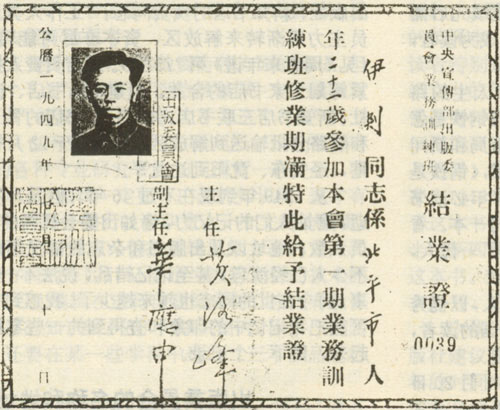 中央宣傳部出版
委員會業務訓練班
結業證
0039
伊 同志係北平市人
年 歲參加本會第 期業務訓
練班修業期滿特此給予結業證
主任 黃洛峰
副主任 華應申
出版委員會
公曆一九四九年 月 十 日